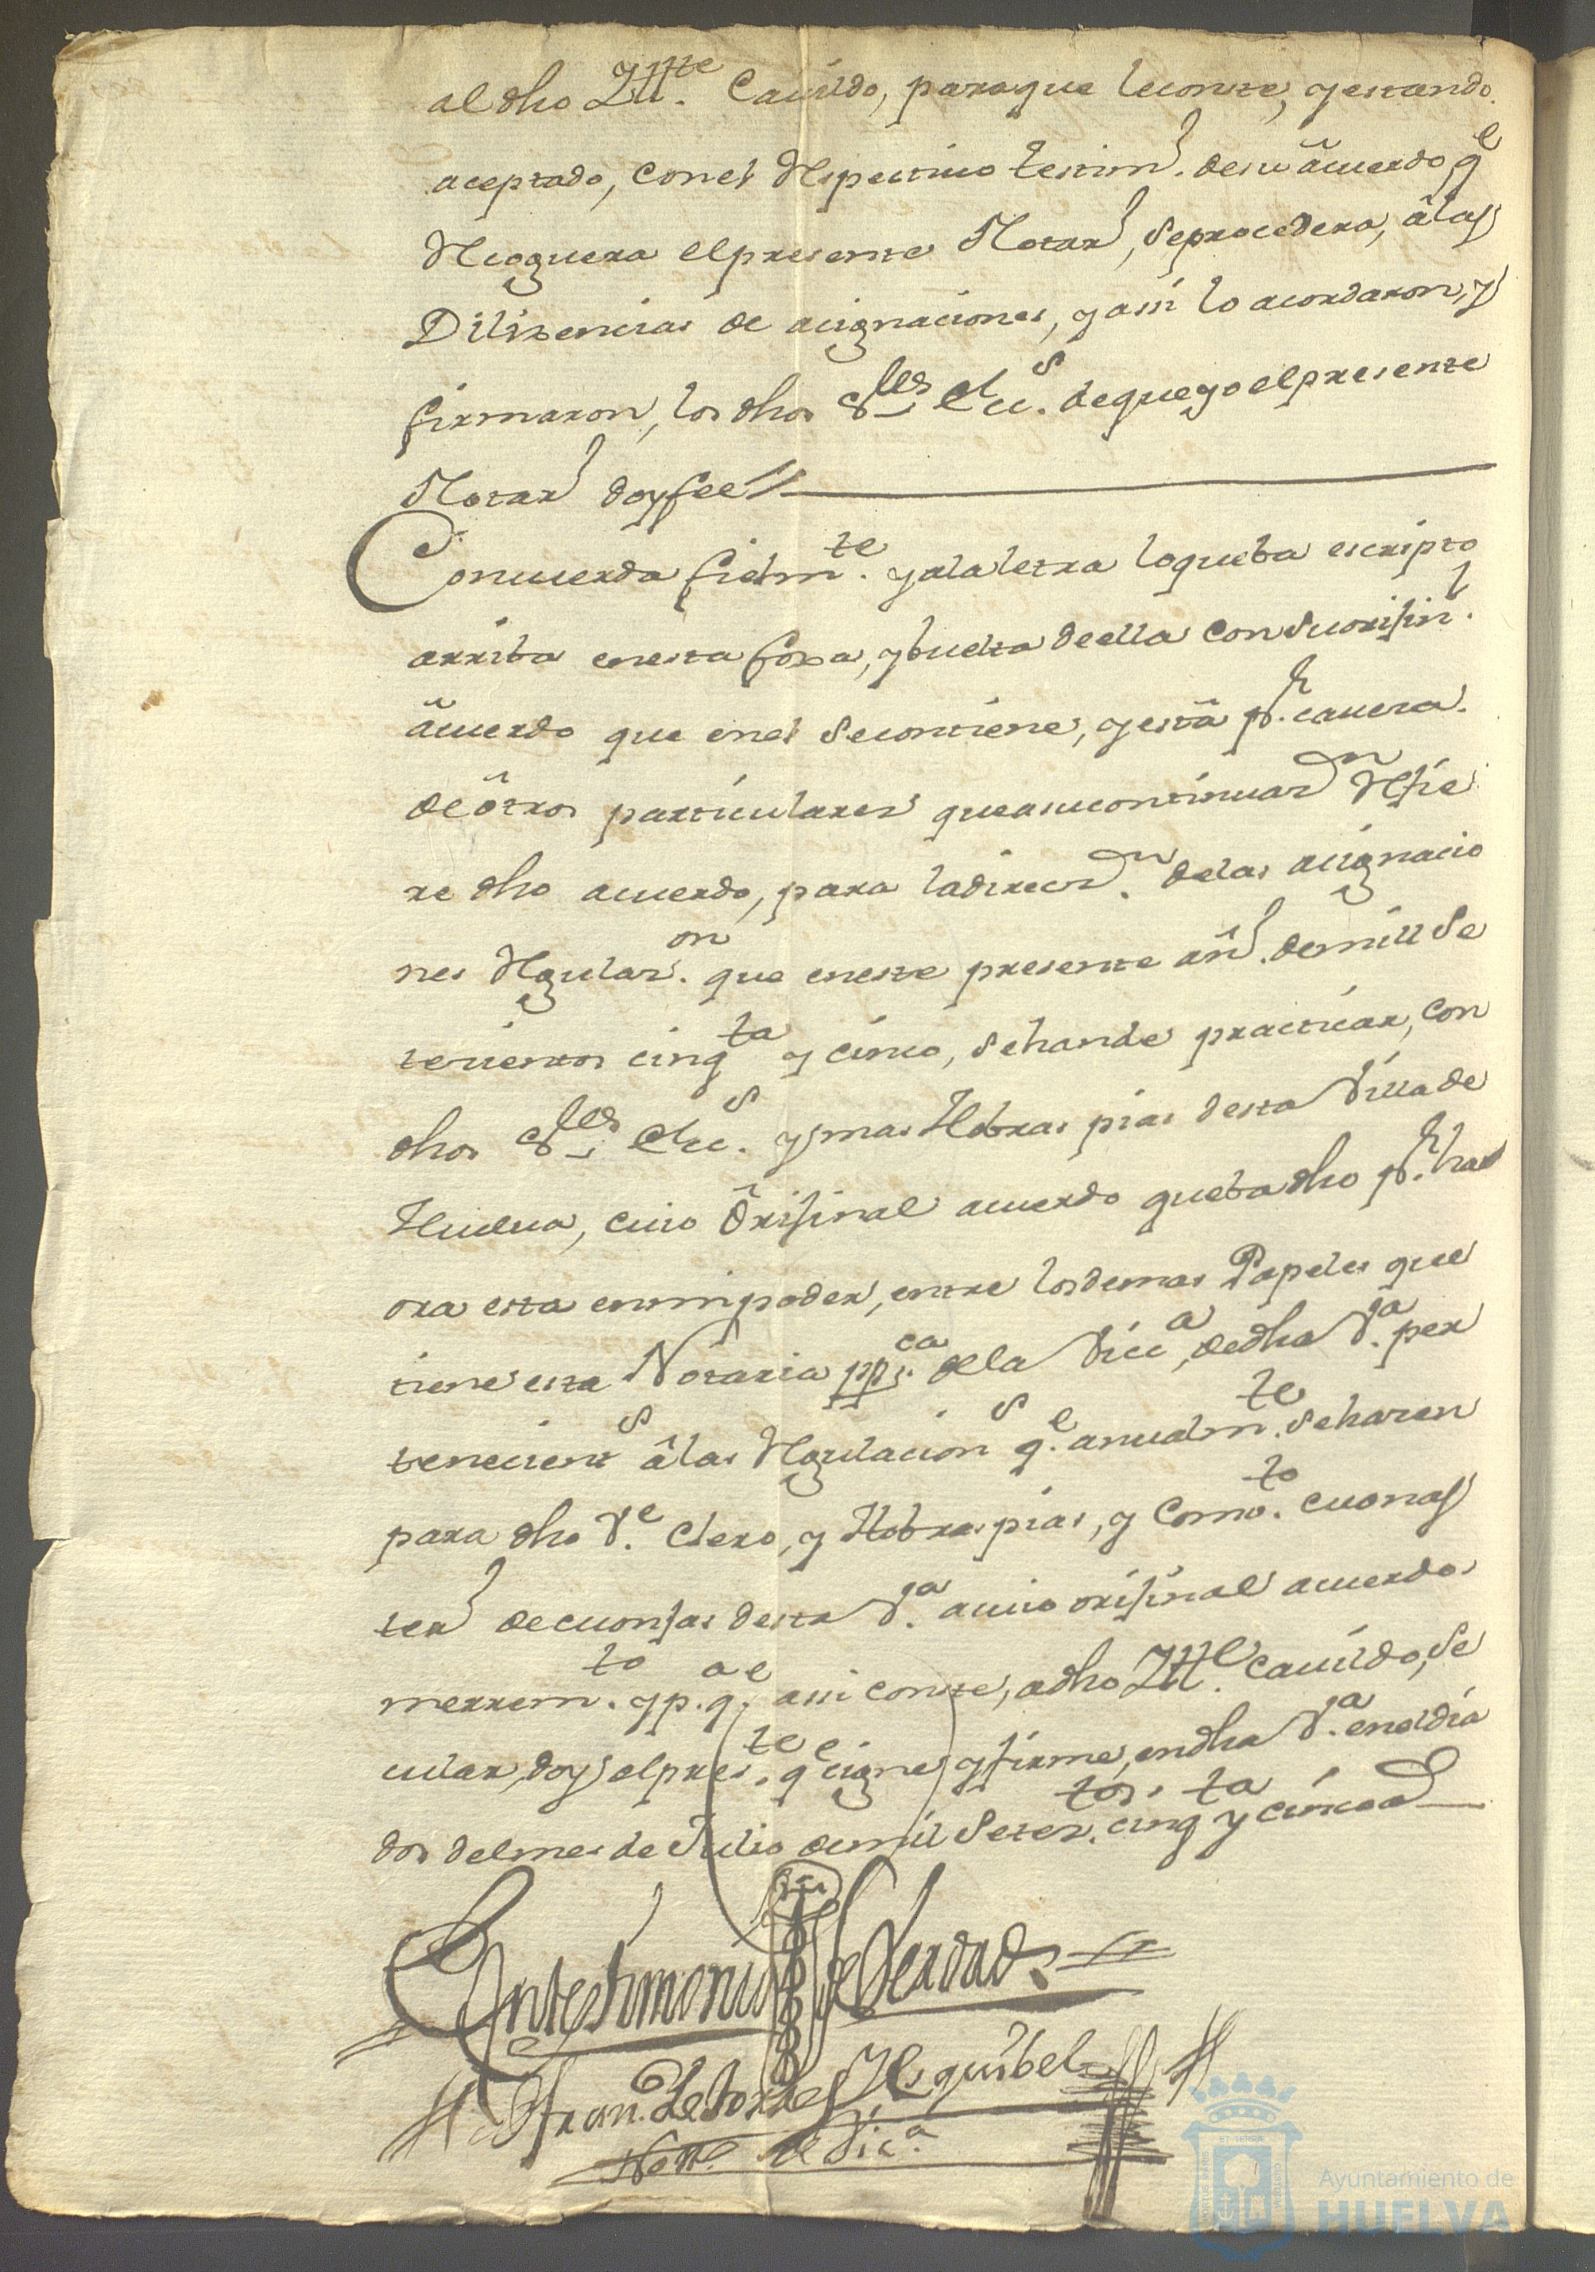 al dho Ille. Cavildo, paraque leconste, yestando
aceptado, conel Respectivo testimo. desu acuerdo qe
Recoguera elpresente Notaro, seprocedera, â las
Dilixencias de acignaciones, y assi lo acordaron, y
firmaron, los dhos Sres. Ecc.s de que yo elpresente
Notaro doyfee//
Concuerda fielmte. yalaletra loqueba escripto
arriba enesta foxa, ybuelta deella con suorijinl.
âcuerdo que enel secontiene, yestâ pr. cavesa.
de ôtros particulares queasucontinuazn Refie
re dho acuerdo, para ladireczn. delas acignacio
nes Regulazon. que eneste presente año. demill se
tecientos cinqta y cinco, sehande practicar, con
dhos Sres. Ecc.s y mas Hobras pias desta Villa de
Huelva, cuio Ôrijinal acuerdo queba dho pr. ha
ora esta enmipoder, entre losdemas Papeles que
tiene esta Notaria ppca. dela Vicca, dedha Va. per
tenecients âlas Regulacions qe. anualmte. se hazen
para dho Ve. Clero, y Hobras pias, y como.to cuonas
tero decuonjas desta Va. acuio orijinal acuerdo
merremto. yp.a qe. assi conste, adho Ille. Cavildo, se
cular, doy elpreste. qe cigne, yfirme, endha Va. eneldia
dos delmes de Julio demil seteztos. cinqta y cinco ad
Entestimonio de Verdad
Frano. de torres Y Esquibel
Nottro. de Vica.
Ayuntamiento de
HUELVA